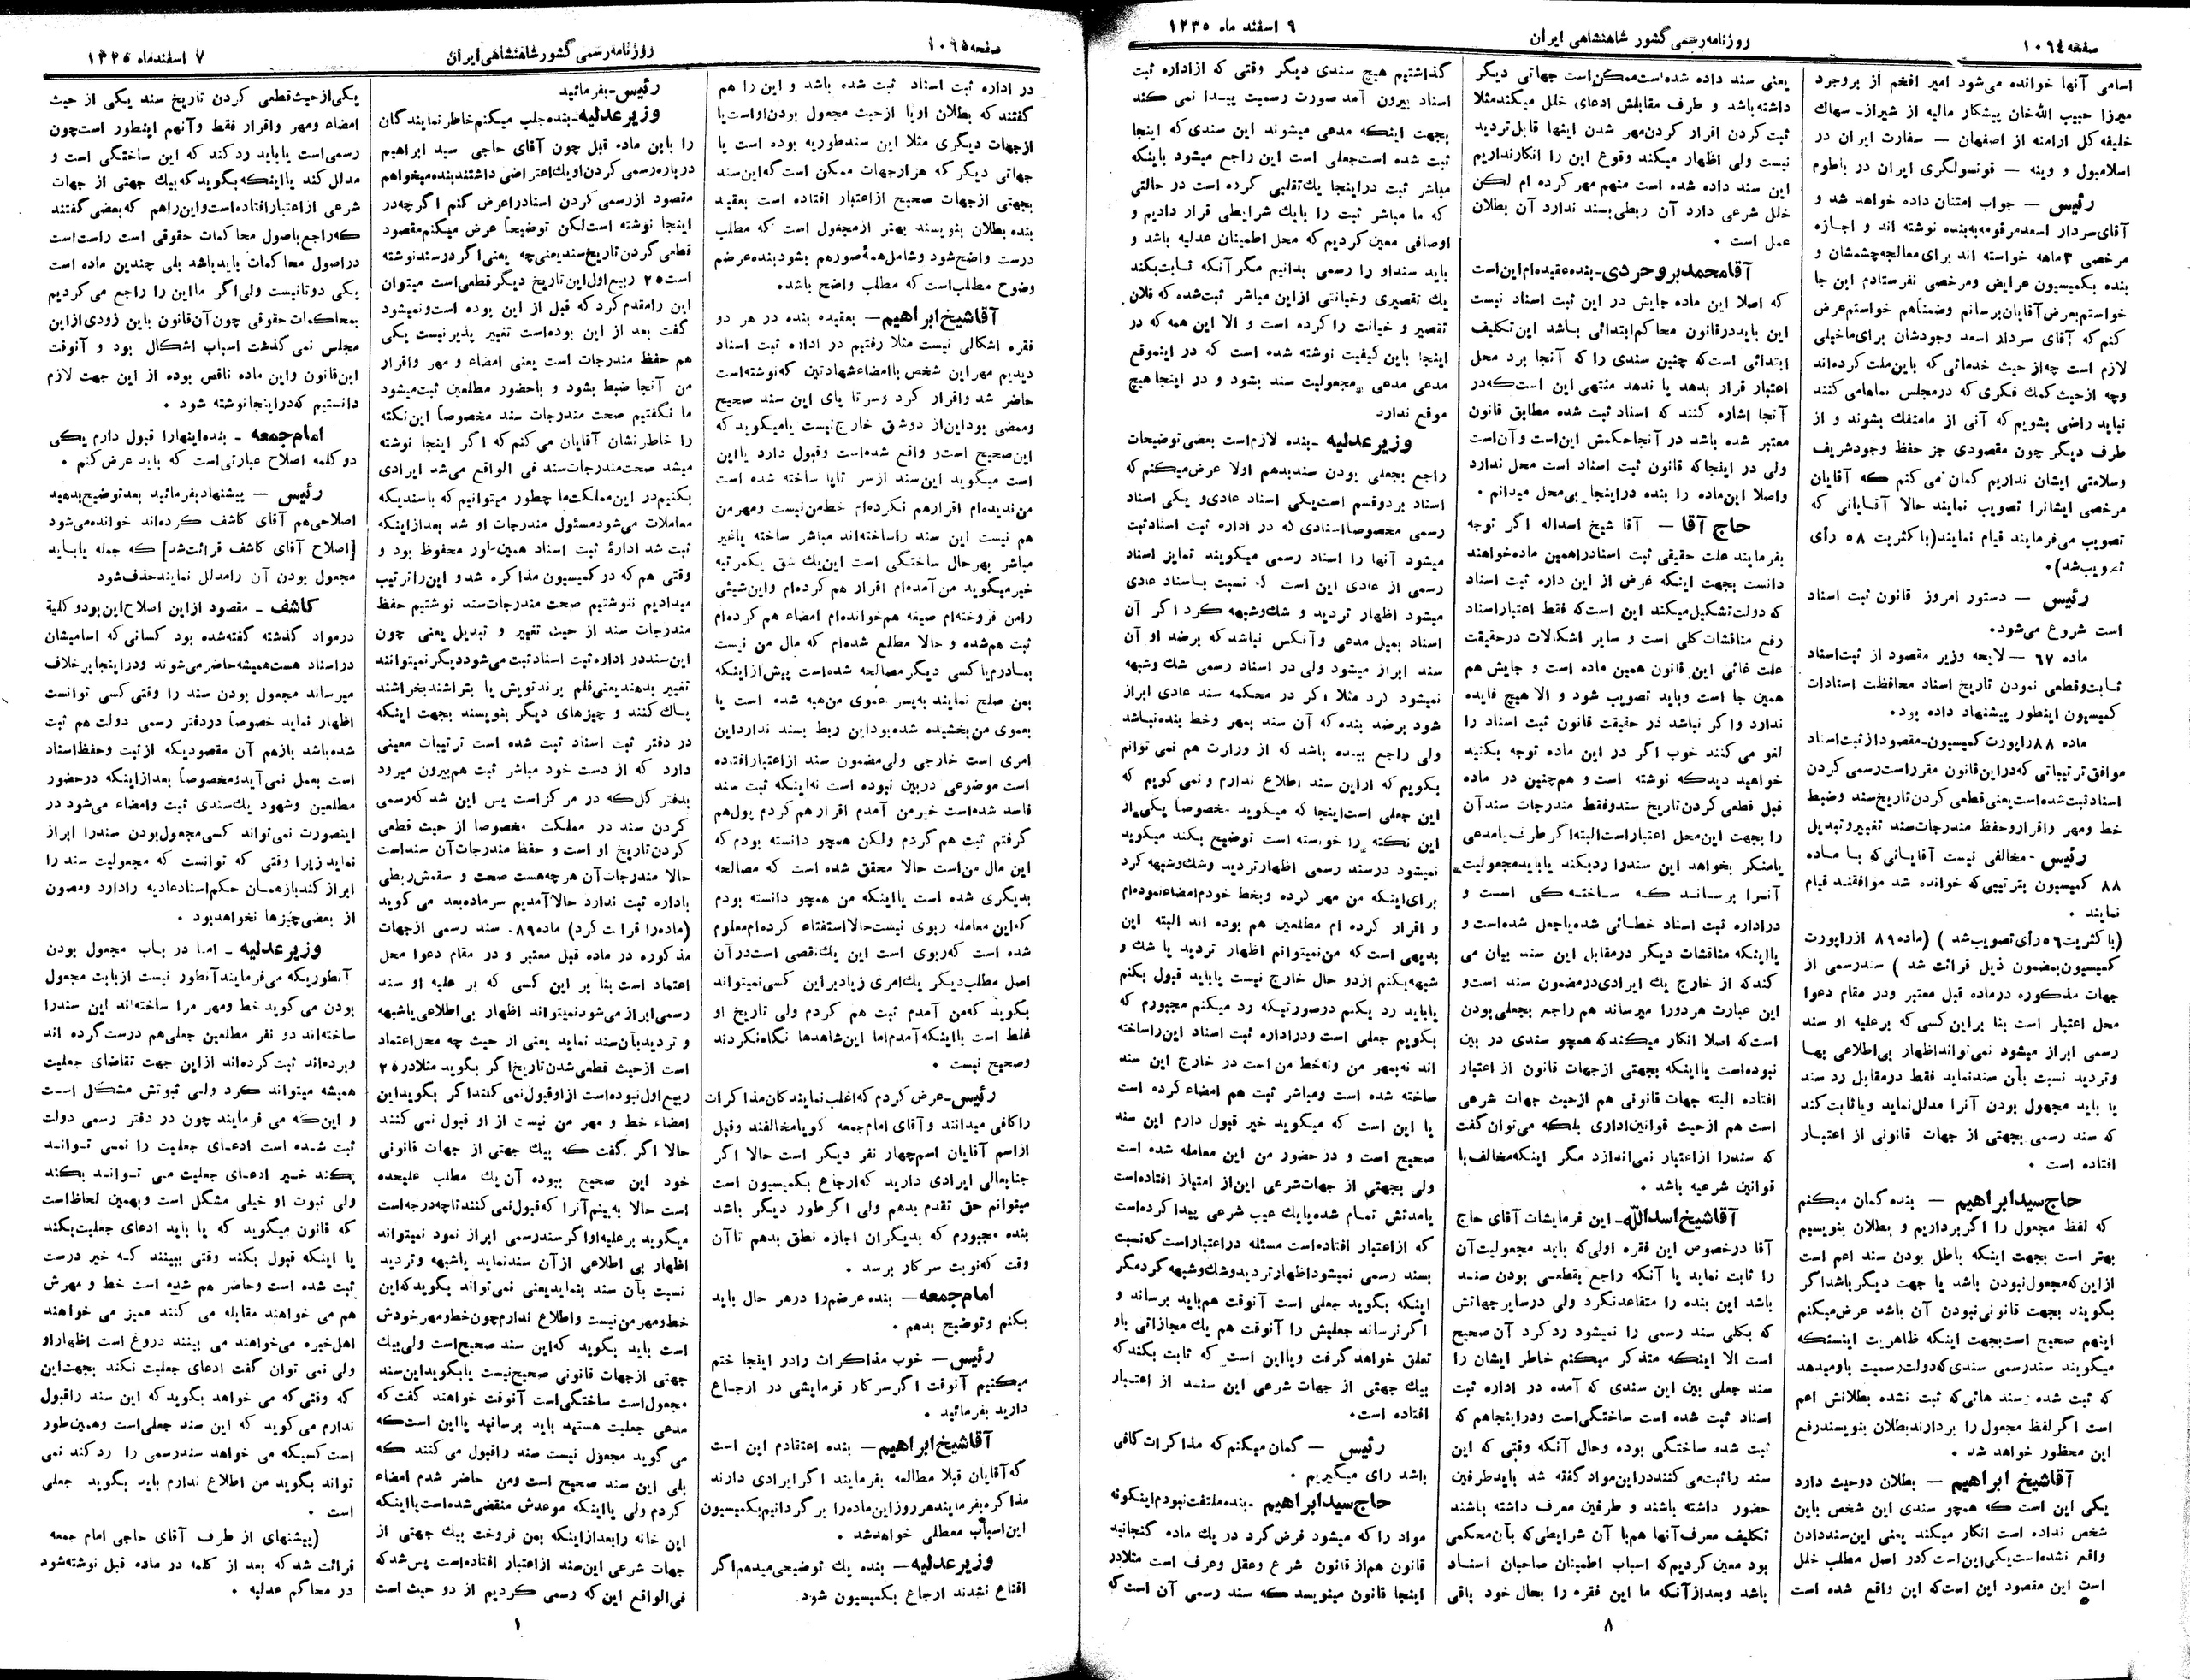 صفحه ۱۰٦٤
روزنامه رسمی کشور شاهنشاهی ایران
۹ اسفند ماه ۱۳۳۵
اسامی آنها خوانده می‌شود امیر افخم از بروجرد
میرزا حبیب الله‌خان پیشکار مالیه از شیراز- سهاك
خلیفه کل ارامنه از اصفهان — سفارت ایران در
اسلامبول و وینه — قونسولگری ایران در باطوم
رئیس — جواب امتنان داده خواهد شد و
آقای سردار اسعد مرقومه به بنده نوشته اند و اجازه
مرخصی ۳ماهه خواسته اند برای معالجه چشمشان و
بنده بکمیسیون عرایض و مرخصی نفرستادم این جا
خواستم بعرض آقایان برسانم و ضمناًهم خواستم عرض
کنم که آقای سردار اسعد وجودشان برای ما خیلی
لازم است چه از حیث خدماتی که باین ملت کرده‌اند
وچه از حیث کمك فکری که در مجلس بماها می کنند
نباید راضی بشویم که آنی از ما منفك بشوند و از
طرف دیگر چون مقصودی جز حفظ وجود شریف
وسلامتی ایشان نداریم گمان نمی کنم که آقایان
مرخصی ایشانرا تصویب نمایند حالا آقایانی که
تصویب می‌فرمایند قیام نمایند(باکثریت ۵۸ رأی
تصویب شد).
رئیس — دستور امروز قانون ثبت اسناد
است شروع می‌شود.
ماده ٦٧ — لایحه وزیر مقصود از ثبت اسناد
ثابت وقطعی نمودن تاریخ اسناد محافظت استادات
کمیسیون اینطور پیشنهاد داده بود.
ماده ۸۸ راپورت کمیسیون-مقصود از ثبت اسناد
موافق ترتیباتی که در این قانون مقرر است رسمی کردن
اسناد ثبت شده است یعنی قطعی کردن تاریخ سند وضبط
خط ومهر واقرار وحفظ مندرجات سند تغییر وتبدیل
رئیس - مخالفی نیست آقایانی که با ماده
۸۸ کمیسیون بترتیبی که خوانده شد موافقند قیام
نمایند .
(با کثریت ٥٦ رأی تصویب شد ) (ماده ۸۹ از راپورت
کمیسیون بمضمون ذیل قرائت شد ) سند رسمی از
جهات مذکوره در ماده قبل معتبر ودر مقام دعوا
محل اعتبار است بنا براین کسی که بر علیه او سند
رسمی ابراز میشود نمی تواند اظهار بی‌اطلاعی بها
وتردید نسبت بآن سند نماید فقط در مقابل رد سند
یا باید مجهول بودن آنرا مدلل نماید ویا ثابت کند
که سند رسمی بجهتی از جهات قانونی از اعتبار
افتاده است .
حاج سید ابراهیم — بنده گمان میکنم
که لفظ مجعول را اگر برداریم و بطلان بنویسیم
بهتر است بجهت اینکه باطل بودن سند اعم است
از این که مجعول نبودن باشد یا جهت دیگر باشد اگر
بگویند بجهت قانونی نبودن آن باشد عرض میکنم
اینهم صحیح است بجهت اینکه ظاهریت اینستکه
میگویند سند رسمی سندی که دولت رسمیت باو میدهد
که ثبت شده : سند هائی که ثبت نشده بطلانش اعم
است اگر لفظ مجعول را بردارند بطلان بنویسند رفع
این محظور خواهد شد .
آقا شیخ ابراهیم — بطلان دو حیث دارد
یکی این است که همچو سندی این شخص باین
شخص نداده است انکار میکند یعنی این سند دادن
واقع نشده است یکی این است که در اصل مطلب خلل
است این مقصود این است که این واقع شده است
یعنی سند داده شده است ممکن است جهاتی دیگر
داشته باشد و طرف مقابلش ادعای خلل میکند مثلا
ثبت کردن اقرار کردن مهر شدن اینها قابل تردید
نیست ولی اظهار میکند وقوع این را انکار نداریم
این سند داده شده است منهم مهر کرده ام لکن
خلل شرعی دارد آن ربطی بسند ندارد آن بطلان
عمل است .
آقا محمد بروجردی-بنده عقیده‌ام این است
که اصلا این ماده جایش در این ثبت اسناد نیست
این باید در قانون محاکم ابتدائی باشد این تکلیف
ابتدائی است که چنین سندی را که آنجا برد محل
اعتبار قرار بدهد یا ندهد منتهی این است که در
آنجا اشاره کنند که اسناد ثبت شده مطابق قانون
معتبر شده باشد در آنجا حکمش این است و آن است
ولی در اینجا که قانون ثبت اسناد است محل ندارد
واصلا این ماده را بنده در اینجا بی محل میدانم .
حاج آقا — آقا شیخ اسداله اگر توجه
بفرمایند علت حقیقی ثبت اسناد را همین ماده خواهند
دانست بجهت اینکه غرض از این داره ثبت اسناد
که دولت تشکیل میکند این است که فقط اعتبار اسناد
رفع مناقشات کلی است و سایر اشکالات در حقیقت
علت غائی این قانون همین ماده است و جایش هم
همین جا است وباید تصویب شود و الا هیچ فایده
ندارد واگر نباشد در حقیقت قانون ثبت اسناد را
لغو می کنند خوب اگر در این ماده توجه بکنید
خواهید دید که نوشته است و هم‌چنین در ماده
قبل قطعی کردن تاریخ سند وفقط مندرجات سند آن
را بجهت این محل اعتبار است البته اگر طرف یا مدعی
یا منکر بخواهد این سند را رد بکند یا باید مجعولیت
آنرا برساند که ساختگی است و
در اداره ثبت اسناد خطائی شده یا جعل شده است و
یا اینکه مناقشات دیگر در مقابل این سند بیان می
کند که از خارج یك ایرادی در مضمون سند است و
این عبارت هر دو را میرساند هم راجع بجعلی بودن
است که اصلا انکار میکند که همچو سندی در بین
نبوده است یا اینکه بجهتی از جهات قانون از اعتبار
افتاده البته جهات قانونی هم از حیث جهات شرعی
است هم از حیث قوانین اداری بلکه می توان گفت
که سند را از اعتبار نمی اندازد مگر اینکه مخالف با
قوانین شرعیه باشد .
آقا شیخ اسدالله- این فرمایشات آقای حاج
آقا در خصوص این فقره اولی که باید مجعولیت آن
را ثابت نماید یا آنکه راجع بقطعی بودن سند
باشد این بنده را متقاعد نکرد ولی در سایر جهاتش
که بکلی سند رسمی را نمیشود رد کرد آن صحیح
است الا اینکه متذکر میکنم خاطر ایشان را
سند جعلی بین این سندی که آمده در اداره ثبت
اسناد ثبت شده است ساختگی است و در اینجا هم که
ثبت شده ساختگی بوده وحال آنکه وقتی که این
سند را ثبت می کنند در این مواد گفته شد باید طرفین
حضور داشته باشند و طرفین معرف داشته باشند
تکلیف معرف آنها هم با آن شرایطی که بآن محکمی
بود معین کردیم که اسباب اطمینان صاحبان اسناد
باشد وبعد از آنکه ما این فقره را بحال خود باقی
گذاشتیم هیچ سندی دیگر وقتی که از اداره ثبت
اسناد بیرون آمد صورت رسمیت پیدا نمی کند
بجهت اینکه مدعی میشوند این سندی که اینجا
ثبت شده است جعلی است این راجع میشود باینکه
مباشر ثبت در اینجا یك تقلبی کرده است در حالتی
که ما مباشر ثبت را بایك شرایطی قرار دادیم و
اوصافی معین کردیم که محل اطمینان عدلیه باشد و
باید سند او را رسمی بدانیم مگر آنکه ثابت بکند
یك تقصیری وخیانتی از این مباشر ثبت شده که فلان
تقصیر و خیانت را کرده است و الا این همه که در
اینجا باین کیفیت نوشته شده است که در اینموقع
مدعی مدعی مجعولیت سند بشود و در اینجا هیچ
موقع ندارد
وزیر عدلیه -بنده لازم است بعضی توضیحات
راجع بجعلی بودن سند بدهم اولا عرض میکنم که
اسناد بر دو قسم است یکی اسناد عادی و یکی اسناد
رسمی مخصوصاً اسنادی که در اداره ثبت اسناد ثبت
میشود آنها را اسناد رسمی میگویند تمایز اسناد
رسمی از عادی این است که نسبت باسناد عادی
میشود اظهار تردید و شك وشبهه کرد اگر آن
اسناد بمیل مدعی و آنکس نباشد که برضد او آن
سند ابراز میشود ولی در اسناد رسمی شك وشبهه
نمیشود کرد مثلا اگر در محکمه سند عادی ابراز
شود برضد بنده که آن سند بمهر وخط بنده نباشد
ولی راجع ببنده باشد که از وراثت هم نمی توانم
بگویم که از این سند اطلاع ندارم و نمی گویم که
این جعلی است اینجا که میگوید مخصوصاً یکی از
این نکته را خواسته است توضیح بکند میگوید
نمیشود در سند رسمی اظهار تردید وشك وشبهه کرد
برای اینکه من مهر کرده وبخط خودم امضاء نموده‌ام
و اقرار کرده ام مطلعین هم بوده اند البته این
بدیهی است که من نمیتوانم اظهار تردید یا شك و
شبهه بکنم از دو حال خارج نیست یا باید قبول بکنم
یا باید رد بکنم در صورتیکه رد میکنم مجبورم که
بگویم جعلی است ودر اداره ثبت اسناد این را ساخته
اند نه بمهر من ونه خط من است در خارج این سند
ساخته شده است ومباشر ثبت هم امضاء کرده است
یا این است که میگوید خیر قبول دارم این سند
صحیح است و در حضور من این معامله شده است
ولی بجهتی از جهات شرعی این از امتیاز افتاده است
یا مدتش تمام شده یا یك عیب شرعی پیدا کرده است
که از اعتبار افتاده است مسئله در اعتبار است که نسبت
بسند رسمی نمیشود اظهار تردید وشك وشبهه کرد مگر
اینکه بگوید جعلی است آنوقت هم باید برساند و
اگر نرساند جعلیش را آنوقت هم یك مجازاتی باو
تعلق خواهد گرفت ویا این است که ثابت بکند که
بیك جهتی از جهات شرعی این سند از اعتبار
افتاده است.
رئیس — گمان میکنم که مذاکرات کافی
باشد رای میگیریم .
حاج سید ابراهیم -بنده ملتفت نبودم اینگونه
مواد را که میشود فرض کرد در یك ماده گنجانید
قانون هم از قانون شرع وعقل وعرف است مثلا در
اینجا قانون مینویسد که سند رسمی آن است که
۸
صفحه ۱۰٦۵
روزنامه رسمی کشور شاهنشاهی ایران
۷ اسفند ماه ۱۳۳۵
در اداره ثبت اسناد ثبت شده باشد و این را هم
گفتند که بطلان او یا از حیث مجعول بودن او است یا
از جهات دیگری مثلا این سند طوریه بوده است یا
جهاتی دیگر که هزار جهات ممکن است که این سند
بجهتی از جهات صحیح از اعتبار افتاده است بعقید
بنده بطلان بنویسند بهتر از مجعول است که مطلب
درست واضح شود وشامل همۀ صور هم بشود بنده عرضم
وضوح مطلب است که مطلب واضح باشد.
آقا شیخ ابراهیم — بعقیده بنده در هر دو
فقره اشکالی نیست مثلا رفتیم در اداره ثبت اسناد
دیدیم مهر این شخص با امضاء شهادتین که نوشته است
حاضر شد واقرار کرد وسر تا پای این سند صحیح
وممضی بود این از دو شق خارج نیست یا میگوید که
این صحیح است و واقع شده است وقبول دارد یا این
است میگوید این سند از سر تا پا ساخته شده است
من ندیده‌ام اقرار هم نکرده‌ام خط من نیست ومهر من
هم نیست این سند را ساخته‌اند مباشر ساخته یا غیر
مباشر بهر حال ساختگی است این یك شق یکمرتبه
خیر میگوید من آمده‌ام اقرار هم کرده‌ام و این شیئی
را من فروخته‌ام صیغه هم خوانده‌ام امضاء هم کرده‌ام
ثبت هم شده و حالا مطلع شده‌ام که مال من نیست
بمادرم یا کسی دیگر مصالحه شده است پیش از اینکه
بمن صلح نمایند به پسر عموی من هبه شده است یا
بعموی من بخشیده شده بود این ربط بسند ندارد این
امری است خارجی ولی مضمون سند از اعتبار افتاده
است موضوعی در بین نبوده است نه اینکه ثبت سند
فاسد شده است خیر من آمدم اقرار هم کردم پول هم
گرفتم ثبت هم کردم ولکن همچو دانسته بودم که
این مال من است حالا محقق شده است که مصالحه
بدیگری شده است یا اینکه من همچو دانسته بودم
که این معامله ربوی نیست حالا استفتاء کرده‌ام معلوم
شده است که ربوی است این یك نقصی است در آن
اصل مطلب دیگر یك امری زیاد بر این کسی نمیتواند
بگوید که من آمدم ثبت هم کردم ولی تاریخ او
غلط است یا اینکه آمدم اما این شاهدها نگاه نکردند
وصحیح نیست .
رئیس-عرض کردم که اغلب نمایندگان مذاکرات
را کافی میدانند و آقای امام جمعه گویا مخالفند وقبل
از اسم آقایان اسم چهار نفر دیگر است حالا اگر
جنابعالی ایرادی دارید که ارجاع بکمیسیون است
میتوانم حق تقدم بدهم ولی اگر طور دیگر باشد
بنده مجبورم که بدیگران اجازه نطق بدهم تا آن
وقت که نوبت سرکار برسد .
امام جمعه— بنده عرضم را در هر حال باید
بکنم وتوضیح بدهم .
رئیس — خوب مذاکرات را در اینجا ختم
میکنیم آنوقت اگر سرکار فرمایشی در ارجاع
دارید بفرمائید .
آقا شیخ ابراهیم— بنده اعتقادم این است
که آقایان قبلا مطالعه بفرمایند اگر ایرادی دارند
مذاکره بفرمایند هر روز این ماده را بر گردانیم بکمیسیون
این اسباب معطلی خواهد شد .
وزیر عدلیه— بنده یك توضیحی میدهم اگر
اقناع نشدند ارجاع بکمیسیون شود.
رئیس-بفرمائید
وزیر عدلیه-بنده جلب میکنم خاطر نمایندگان
را باین ماده قبل چون آقای حاجی سید ابراهیم
در باره رسمی کردن او یك اعتراضی داشتند بنده میخواهم
مقصود از رسمی کردن اسناد را عرض کنم اگر چه در
اینجا نوشته است لکن توضیحاً عرض میکنم مقصود
قطعی کردن تاریخ سند یعنی چه یعنی اگر در سند نوشته
است ۲۵ ربیع اول این تاریخ دیگر قطعی است میتوان
این را مقدم کرد که قبل از این بوده است و نمیشود
گفت بعد از این بوده است تغییر پذیر نیست یکی
هم حفظ مندرجات است یعنی امضاء و مهر واقرار
من آنجا ضبط بشود و با حضور مطلعین ثبت میشود
ما نگفتیم صحت مندرجات سند مخصوصاً این نکته
را خاطر نشان آقایان می کنم که اگر اینجا نوشته
میشد صحت مندرجات سند فی الواقع می شد ایرادی
بکنیم در این مملکت ما چطور میتوانیم که با سندیکه
معاملات می شود مسئول مندرجات او شد بعد از اینکه
ثبت شد ادارۀ ثبت اسناد همین طور محفوظ بود و
وقتی هم که در کمیسیون مذاکره شد و این را ترتیب
میدادیم ننوشتیم صحت مندرجات سند نوشتیم حفظ
مندرجات سند از حیث تغییر و تبدیل یعنی چون
این سند در اداره ثبت اسناد ثبت می شود دیگر نمیتوانند
تغییر بدهند یعنی قلم برند تویش یا بتراشند بخراشند
پاك کنند و چیزهای دیگر بنویسند بجهت اینکه
در دفتر ثبت اسناد ثبت شده است ترتیبات معینی
دارد که از دست خود مباشر ثبت هم بیرون میرود
بدفتر کل که در مرکز است پس این شد که رسمی
کردن سند در مملکت مخصوصاً از حیث قطعی
کردن تاریخ او است و حفظ مندرجات آن سند است
حالا مندرجات آن هر چه هست صحت و سقمش ربطی
باداره ثبت ندارد حالا آمدیم سر ماده بعد می گوید
(ماده را قرائت کرد) ماده ۸۹. سند رسمی از جهات
مذکوره در ماده قبل معتبر و در مقام دعوا محل
اعتماد است بنا بر این کسی که بر علیه او سند
رسمی ابراز می شود نمیتواند اظهار بی اطلاعی یا شبهه
و تردید بآن سند نماید یعنی از حیث چه محل اعتماد
است از حیث قطعی شدن تاریخ اگر بگوید مثلا در ۲۵
ربیع اول نبوده است از او قبول نمی کنند اگر بگوید این
امضاء خط و مهر من نیست از او قبول نمی کنند
حالا اگر گفت که بیك جهتی از جهات قانونی
خود این صحیح نبوده آن یك مطلب علیحده
است حالا به بینم آنرا که قبول نمی کنند تا چه درجه است
میگوید بر علیه او اگر سند رسمی ابراز نمود نمیتواند
اظهار بی اطلاعی از آن سند نماید یا شبهه وتردید
نسبت بآن سند بنماید یعنی نمی تواند بگوید که این
خط ومهر من نیست واطلاع ندارم چون خط ومهر خودش
است باید بگوید که این سند صحیح است ولی بیك
جهتی از جهات قانونی صحیح نیست یا بگوید این سند
مجعول است ساختگی است آنوقت خواهند گفت که
مدعی جعلیت هستید باید برسانید یا این است که
می گوید مجعول نیست سند را قبول می کنند که
بلی این سند صحیح است ومن حاضر شدم امضاء
کردم ولی یا اینکه موعدش منقضی شده است یا اینکه
این خانه را بعد از اینکه بمن فروخت بیك جهتی از
جهات شرعی این سند از اعتبار افتاده است پس شد که
فی الواقع این که رسمی کردیم از دو حیث است
یکی از حیث قطعی کردن تاریخ سند یکی از حیث
امضاء ومهر واقرار فقط و آنهم اینطور است چون
رسمی است یا باید رد کند که این ساختگی است و
مدلل کند یا اینکه بگوید که بیك جهتی از جهات
شرعی از اعتبار افتاده است و این را هم که بعضی گفتند
که راجع باصول محاکمات حقوقی است راست است
در اصول محاکمات باید باشد بلی چندین ماده است
یکی دوتا نیست ولی اگر ما این را راجع می کردیم
بمحاکمات حقوقی چون آن قانون باین زودی از این
مجلس نمی گذشت اسباب اشکال بود و آنوقت
این قانون واین ماده ناقص بوده از این جهت لازم
دانستیم که در اینجا نوشته شود .
امام جمعه - بنده اینها را قبول دارم یکی
دو کلمه اصلاح عبارتی است که باید عرض کنم .
رئیس — پیشنهاد بفرمائید بعد توضیح بدهید
اصلاحی هم آقای کاشف کرده‌اند خوانده می شود
[اصلاح آقای کاشف قرائت شد] که جمله یا باید
مجعول بودن آن را مدلل نمایند حذف شود
کاشف - مقصود از این اصلاح این بود و کلیة
در مواد گذشته گفته شده بود کسانی که اسامیشان
در اسناد هست همیشه حاضر می شوند ودر اینجا بر خلاف
میرساند مجعول بودن سند را وقتی کسی توانست
اظهار نماید خصوصاً در دفتر رسمی دولت هم ثبت
شده باشد باز هم آن مقصودیکه از ثبت وحفظ اسناد
است بعمل نمی آید ومخصوصاً بعد از اینکه در حضور
مطلعین وشهود یك سندی ثبت وامضاء می شود در
اینصورت نمی تواند کسی مجعول بودن سند را ابراز
نماید زیرا وقتی که توانست که مجعولیت سند را
ابراز کند باز همان حکم اسناد عادیه را دارد ومصون
از بعضی چیزها نخواهد بود .
وزیر عدلیه - اما در باب مجعول بودن
آنطوریکه می فرمایند آنطور نیست از بابت مجعول
بودن می گوید خط ومهر مرا ساخته‌اند این سند را
ساخته‌اند دو نفر مطلعین جعلی هم درست کرده اند
وبرده‌اند ثبت کرده‌اند از این جهت تقاضای جعلیت
همیشه میتواند کرد ولی ثبوتش مشکل است
و این که می فرمایند چون در دفتر رسمی دولت
ثبت شده است ادعای جعلیت را نمی تواند
بکند خیر ادعای جعلیت می تواند بکند
ولی ثبوت او خیلی مشکل است وبهمین لحاظ است
که قانون میگوید که یا باید ادعای جعلیت بکند
یا اینکه قبول بکند وقتی ببینند که خیر درست
ثبت شده است وحاضر هم شده است خط و مهرش
هم می خواهند مقابله می کنند ممیز می خواهند
اهل خبره می خواهند می بینند دروغ است اظهار او
ولی نمی توان گفت ادعای جعلیت نکند بجهت این
که وقتی که می خواهد بگوید که این سند را قبول
ندارم می گوید که این سند جعلی است وهمین طور
است کسیکه می خواهد سند رسمی را رد کند نمی
تواند بگوید من اطلاع ندارم باید بگوید جعلی
است .
(پیشنهادی از طرف آقای حاجی امام جمعه
قرائت شد که بعد از کلمه در ماده قبل نوشته شود
در محاکم عدلیه .
۱